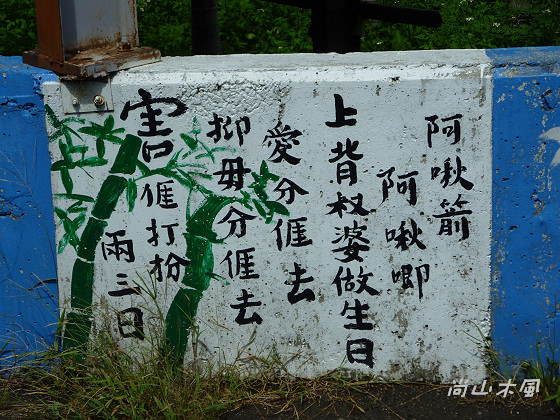 阿啾箭
阿啾唧
上背叔婆做生日
愛分𠊎去
抑毋分𠊎去
害𠊎打扮
兩三日
尚山木風